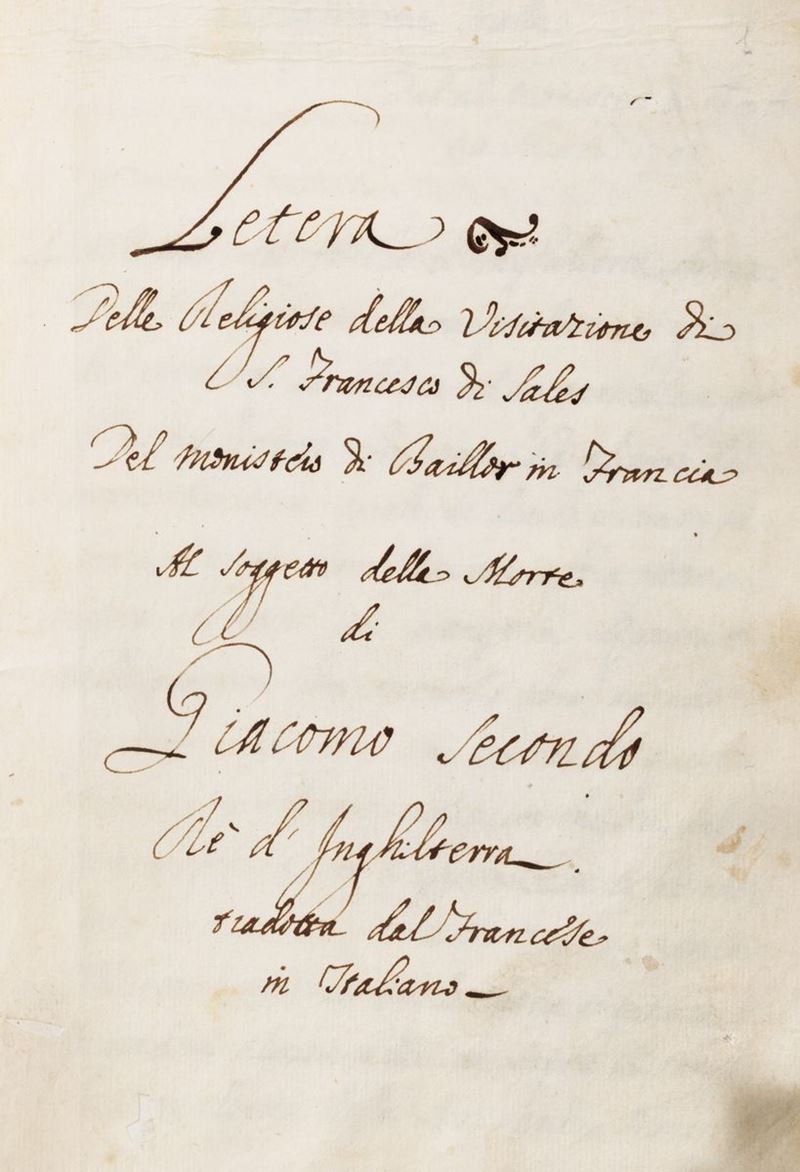 Letera
Delle Religiose della Visitazione di
S. Francesco di Sales
Del monisterio di Baillor in Francia
Al soggetto della Morte
di
Giacomo Secondo
Rè d'Inghilterra.
tradotta dal Francese
in Italiano